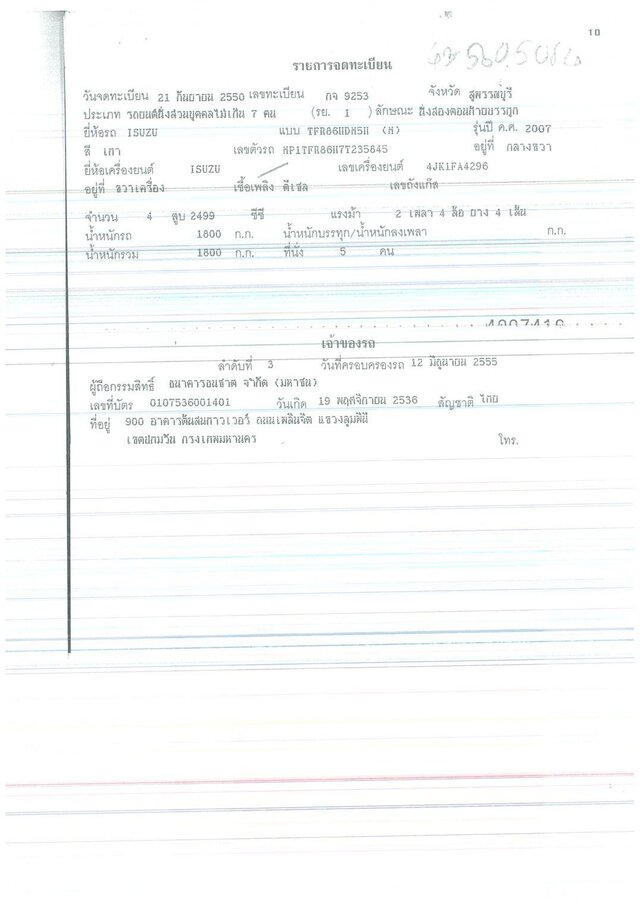 10
รายการจดทะเบียน
วันจดทะเบียน 21 กันยายน 2550 เลขทะเบียน กจ 9253 จังหวัด สุพรรณบุรี
ประเภท รถยนต์นั่งส่วนบุคคลไม่เกิน 7 คน (รย. 1 ) ลักษณะ นั่งสองตอนท้ายบรรทุก
ยี่ห้อรถ ISUZU แบบ TFR86HDM5H (M) รุ่นปี ค.ศ. 2007
สี เทา เลขตัวรถ MP1TFR86H7T235845 อยู่ที่ กลางขวา
ยี่ห้อเครื่องยนต์ ISUZU เลขเครื่องยนต์ 4JK1FA4296
อยู่ที่ ขวาเครื่อง เชื้อเพลิง ดีเซล เลขถังแก๊ส
จำนวน 4 สูบ 2499 ซีซี แรงม้า 2 เพลา 4 ล้อ ยาง 4 เส้น
น้ำหนักรถ 1800 ก.ก. น้ำหนักบรรทุก/น้ำหนักลงเพลา ก.ก.
น้ำหนักรวม 1800 ก.ก. ที่นั่ง 5 คน
เจ้าของรถ
ลำดับที่ 3 วันที่ครอบครองรถ 12 มิถุนายน 2555
ผู้ถือกรรมสิทธิ์ ธนาคารธนชาต จำกัด (มหาชน)
เลขที่บัตร 0107536001401 วันเกิด 19 พฤศจิกายน 2536 สัญชาติ ไทย
ที่อยู่ 900 อาคารต้นสนทาวเวอร์ ถนนเพลินจิต แขวงลุมพินี
เขตปทุมวัน กรุงเทพมหานคร โทร.